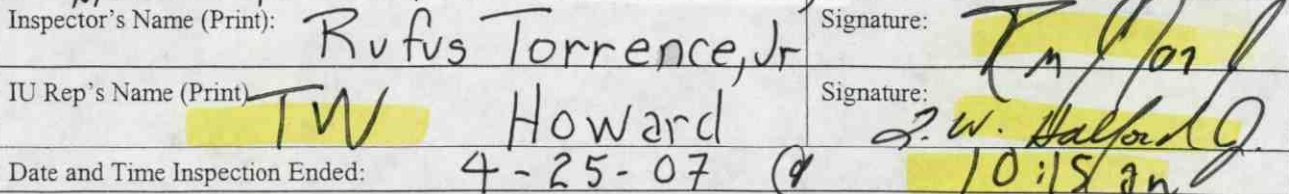 Inspector's Name (Print): Rufus Torrence, Jr Signature:
IU Rep's Name (Print) TW Howard Signature: T. W. Halford J.
Date and Time Inspection Ended: 4-25-07 @ 10:15 am